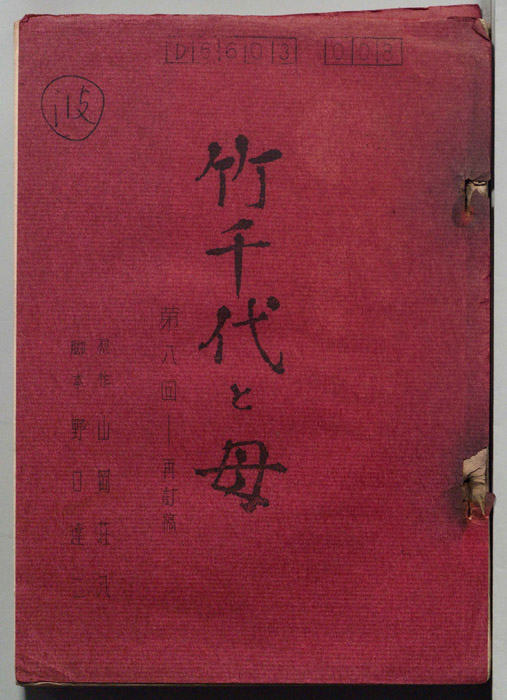 D5603 003
波
竹千代と母
第八回―再訂稿
原作 山岡荘八
脚本 野口達二